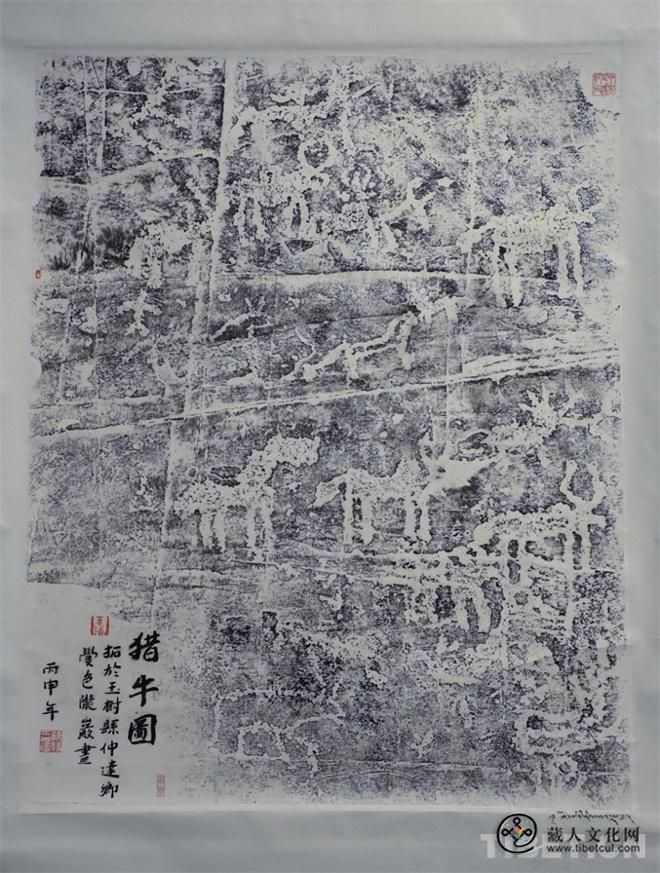 猎牛圖
拓於玉樹縣仲達鄉
覺色隴巖畫
丙申年
藏人文化网
www.tibetcul.com